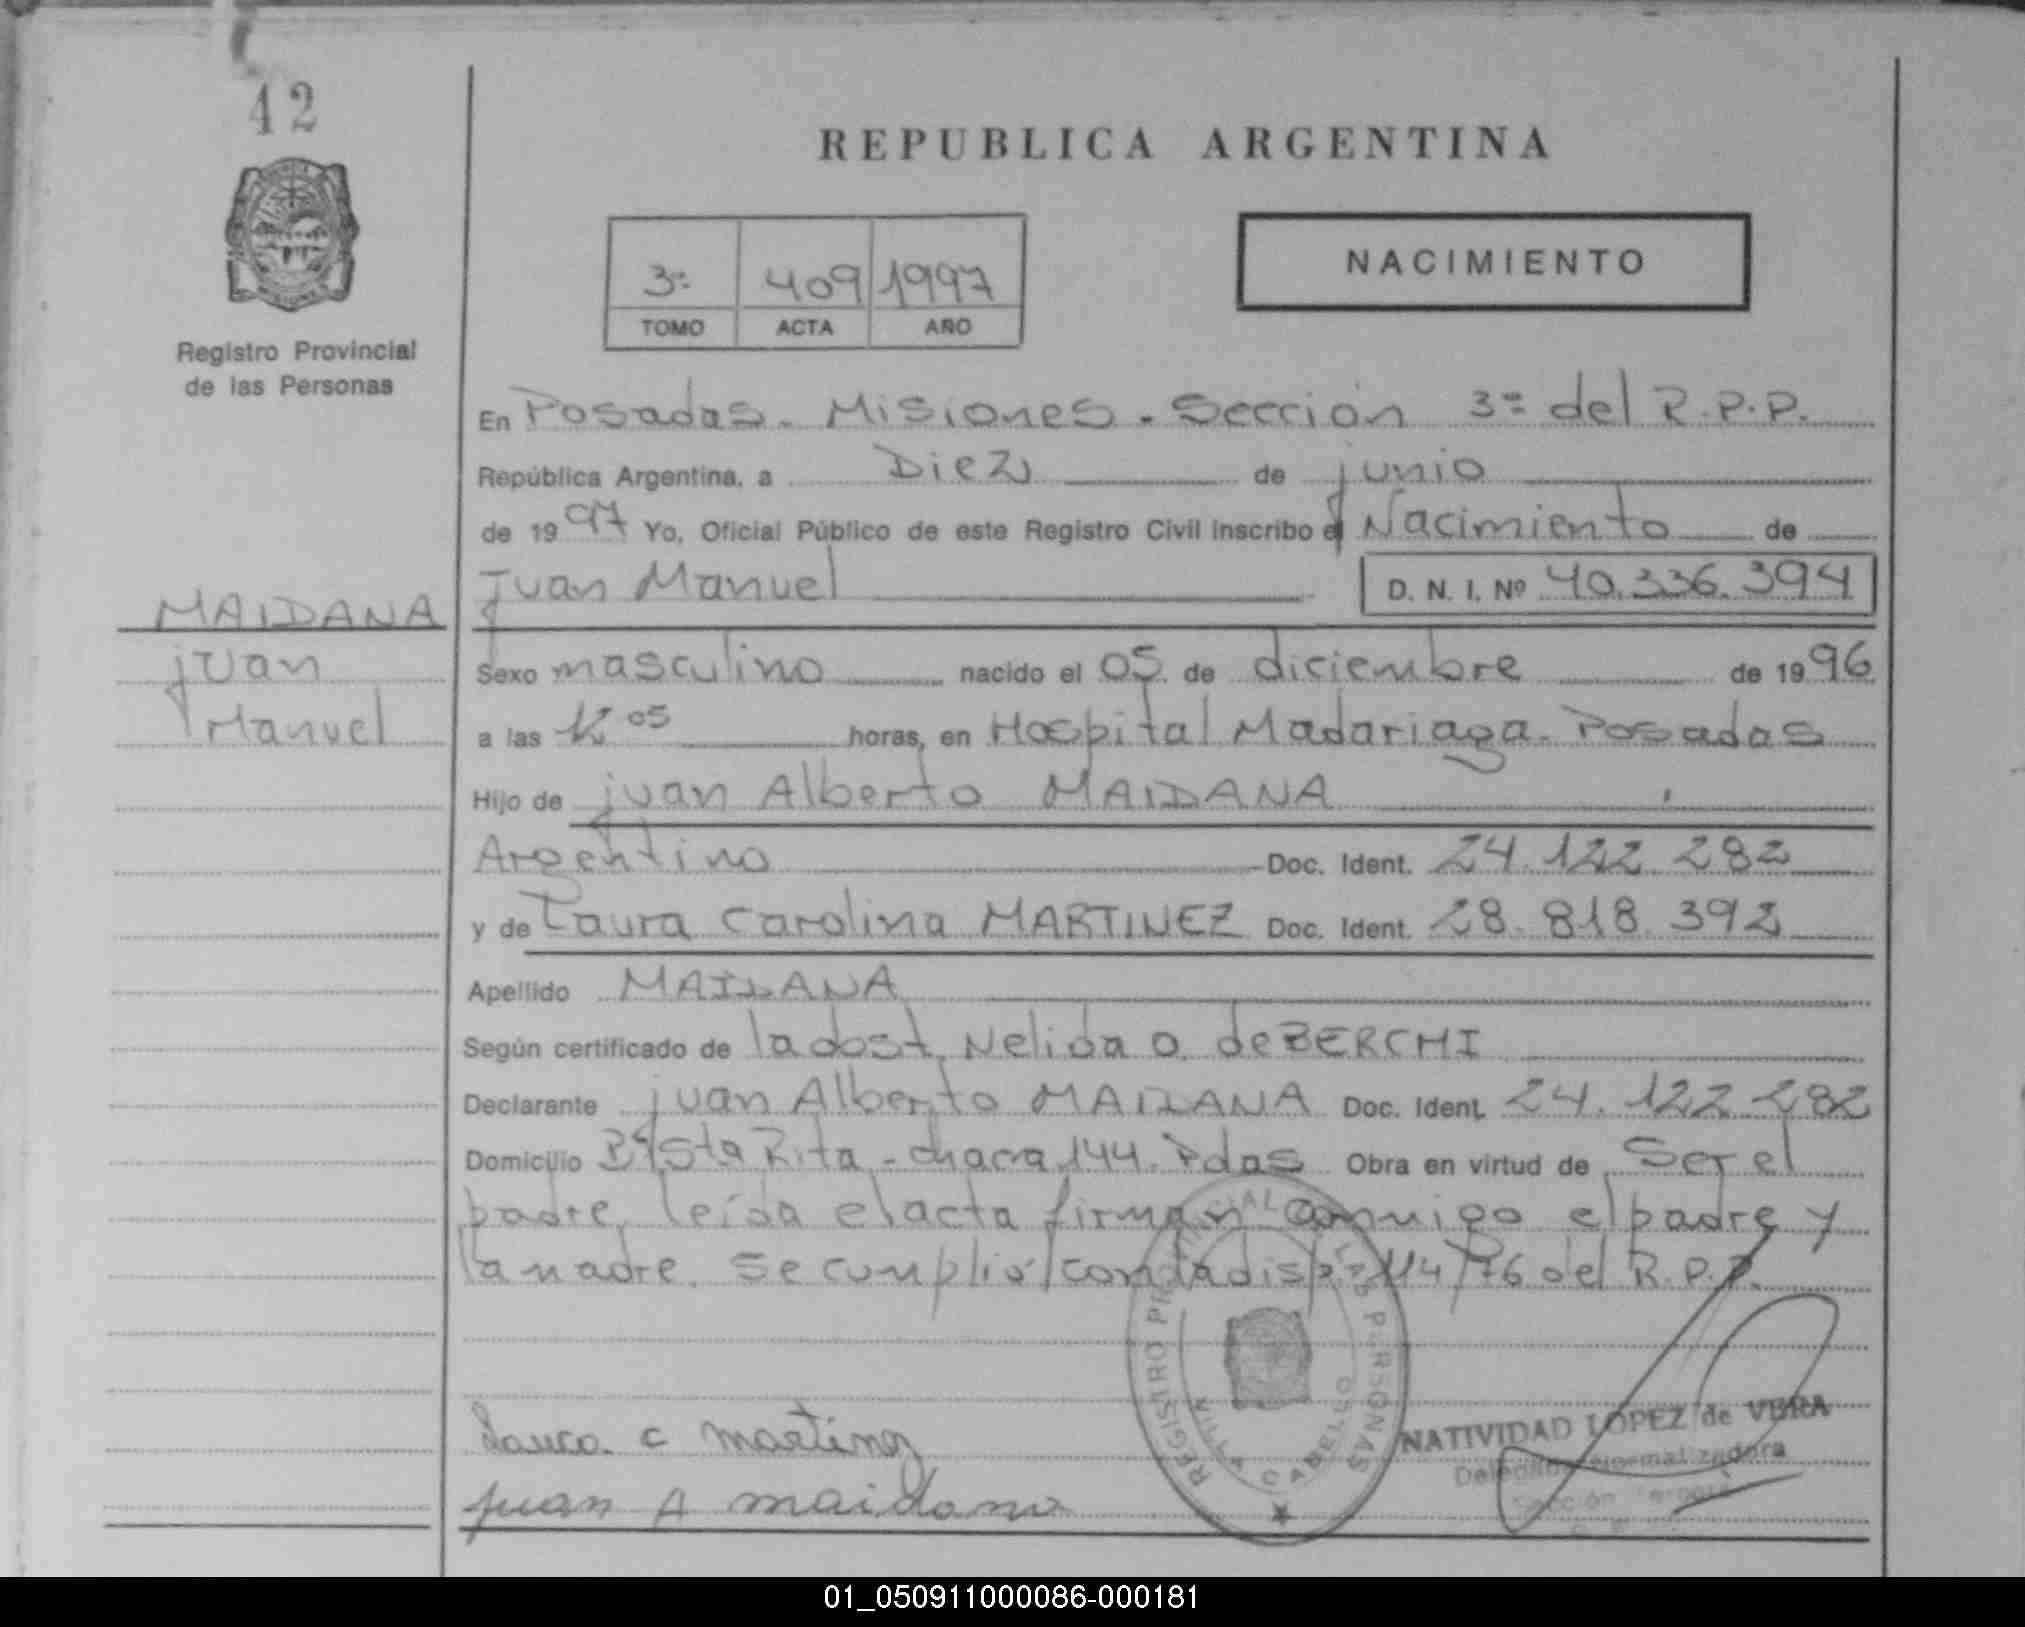 42
REPUBLICA ARGENTINA
3ª 409 1997
TOMO ACTA AÑO
NACIMIENTO
Registro Provincial
de las Personas
En Posadas - Misiones - Sección 3ª del R.P.P.
República Argentina, a Diez de junio
de 1997 Yo, Oficial Público de este Registro Civil inscribo el Nacimiento de
Juan Manuel D. N. I. Nº 40.336.394
MAIDANA
Juan
Manuel
Sexo masculino nacido el 05 de diciembre de 1996
a las 12 05 horas, en Hospital Madariaga - Posadas
Hijo de juan Alberto MAIDANA
Argentino Doc. Ident. 24.122.282
y de Laura Carolina MARTINEZ Doc. Ident. 28.818.392
Apellido MAIDANA
Según certificado de la obst. Nelida O. de ZERCHI
Declarante juan Alberto MAIDANA Doc. Ident. 24.122.282
Domicilio Bº Sta Rita - chacra 144. Pdas Obra en virtud de Ser el
padre, leída el acta firman conmigo el padre y
la madre. Se cumplió con la disp. 114/76 del R.P.P.
Laura C Martinez
Juan A maidana
REGISTRO PROVINCIAL DE LAS PERSONAS
VILLA CABELLO
NATIVIDAD LOPEZ de VERA
Delegada Normalizadora
Sección Tercera
01_050911000086-000181